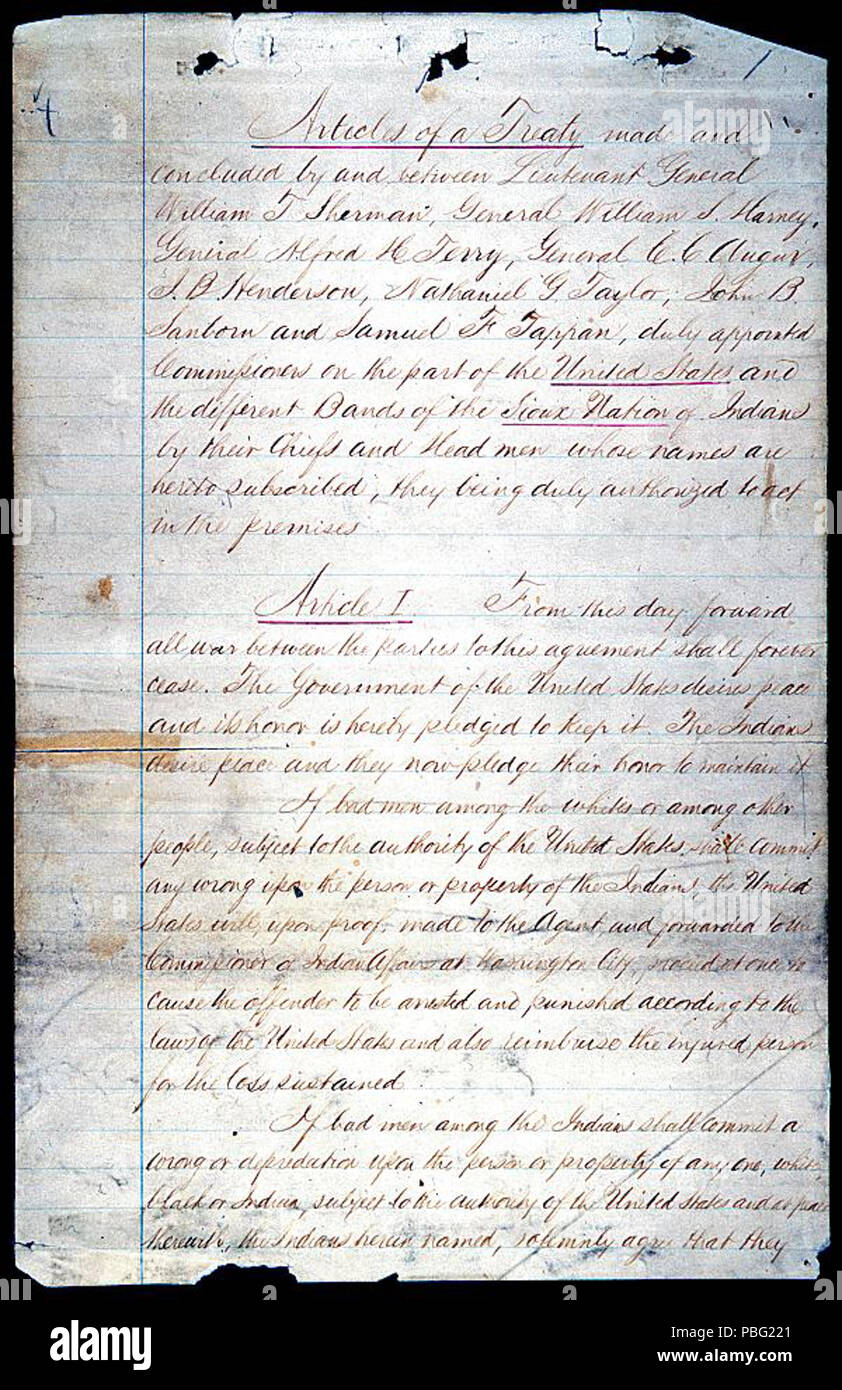 4
Articles of a Treaty made and
concluded by and between Lieutenant General
William T Sherman, General William S. Harney,
General Alfred H Terry, General C. C Augur,
J. B. Henderson, Nathaniel G Taylor, John B
Sanborn and Samuel F Tappan, duly appointed
Commissioners on the part of the United States and
the different Bands of the Sioux Nation of Indians
by their Chiefs and Head men whose names are
hereto subscribed, they being duly authorized to act
in the premises
Article I From this day forward
all war between the parties to this agreement shall forever
cease. The Government of the United States desires peace
and its honor is hereby pledged to keep it. The Indians
desire peace and they now pledge their honor to maintain it
If bad men among the whites or among other
people, subject to the authority of the United States shall commit
any wrong upon the person or property of the Indians, the United
States will, upon proof made to the Agent and forwarded to the
Commissioner of Indian Affairs at Washington City, proceed at once to
cause the offender to be arrested and punished according to the
laws of the United States and also reimburse the injured person
for the loss sustained.
If bad men among the Indians shall commit a
wrong or depredation upon the person or property of any one, white,
black or Indian, subject to the authority of the United States and at peace
therewith, the Indians herein named, solemnly agree that they
alamy
alamy
alamy
Image ID: PBG221
www.alamy.com